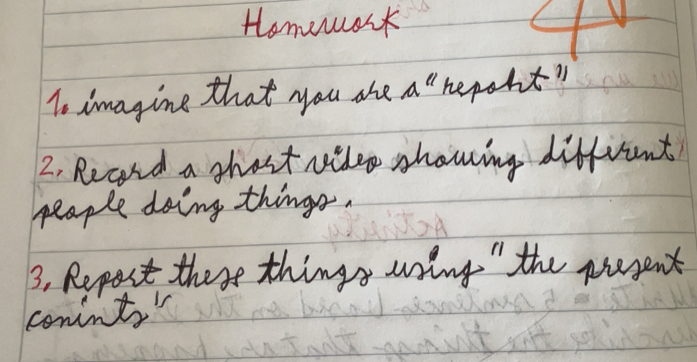 Homework
1. imagine that you are a "repoht"
2. Record a short video showing different
people doing things.
3. Report these things using "the present
conints"